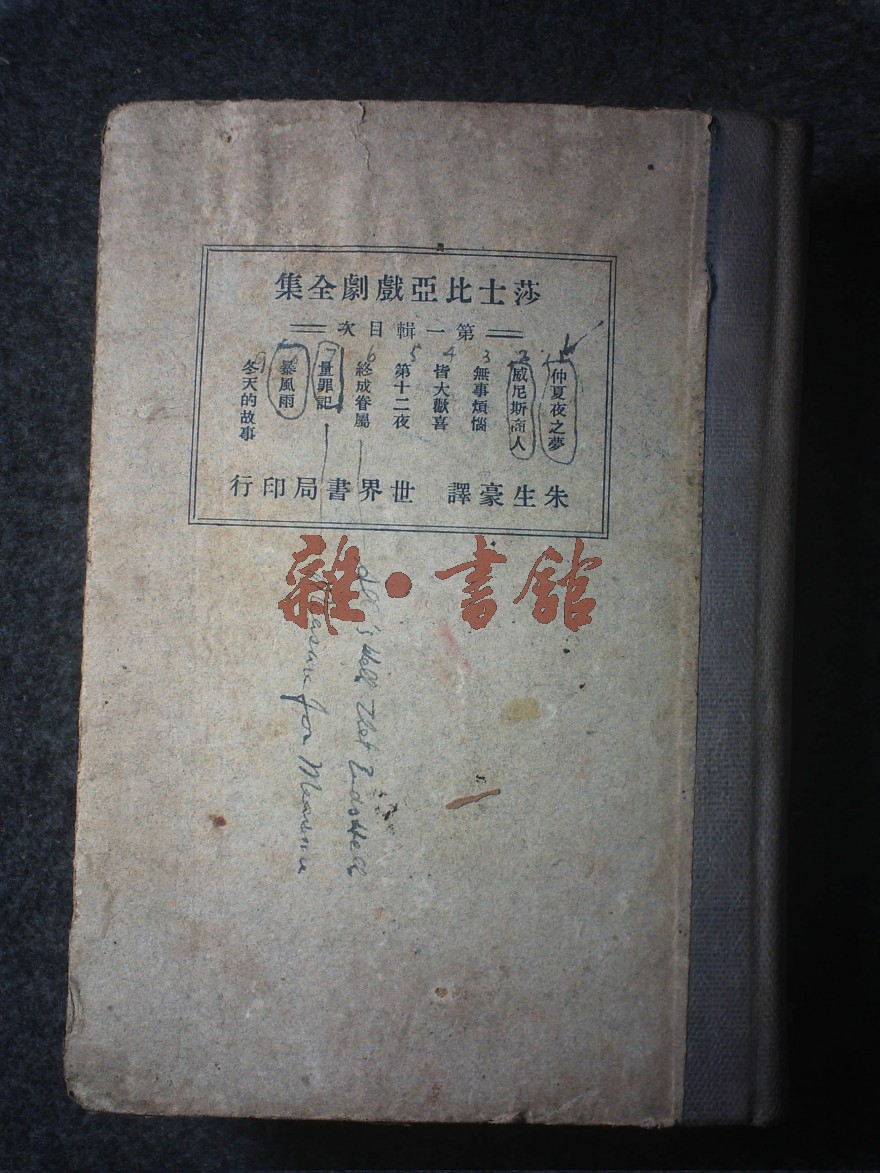 莎士比亞戲劇全集
第一輯目次
1 仲夏夜之夢
2 威尼斯商人
3 無事煩惱
4 皆大歡喜
5 第十二夜
6 終成眷屬
7 量罪記
暴風雨
9 冬天的故事
朱生豪譯 世界書局印行
All's Well That Ends Well
Measure for Measure
雜·書館